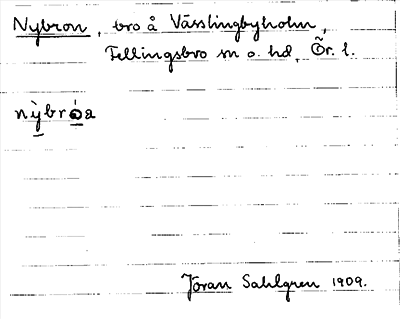 Nybron, bro å Vässlingbyholm,
Fellingsbro sn o. hd, Ör. l.
nỳbróa
Jöran Sahlgren 1909.